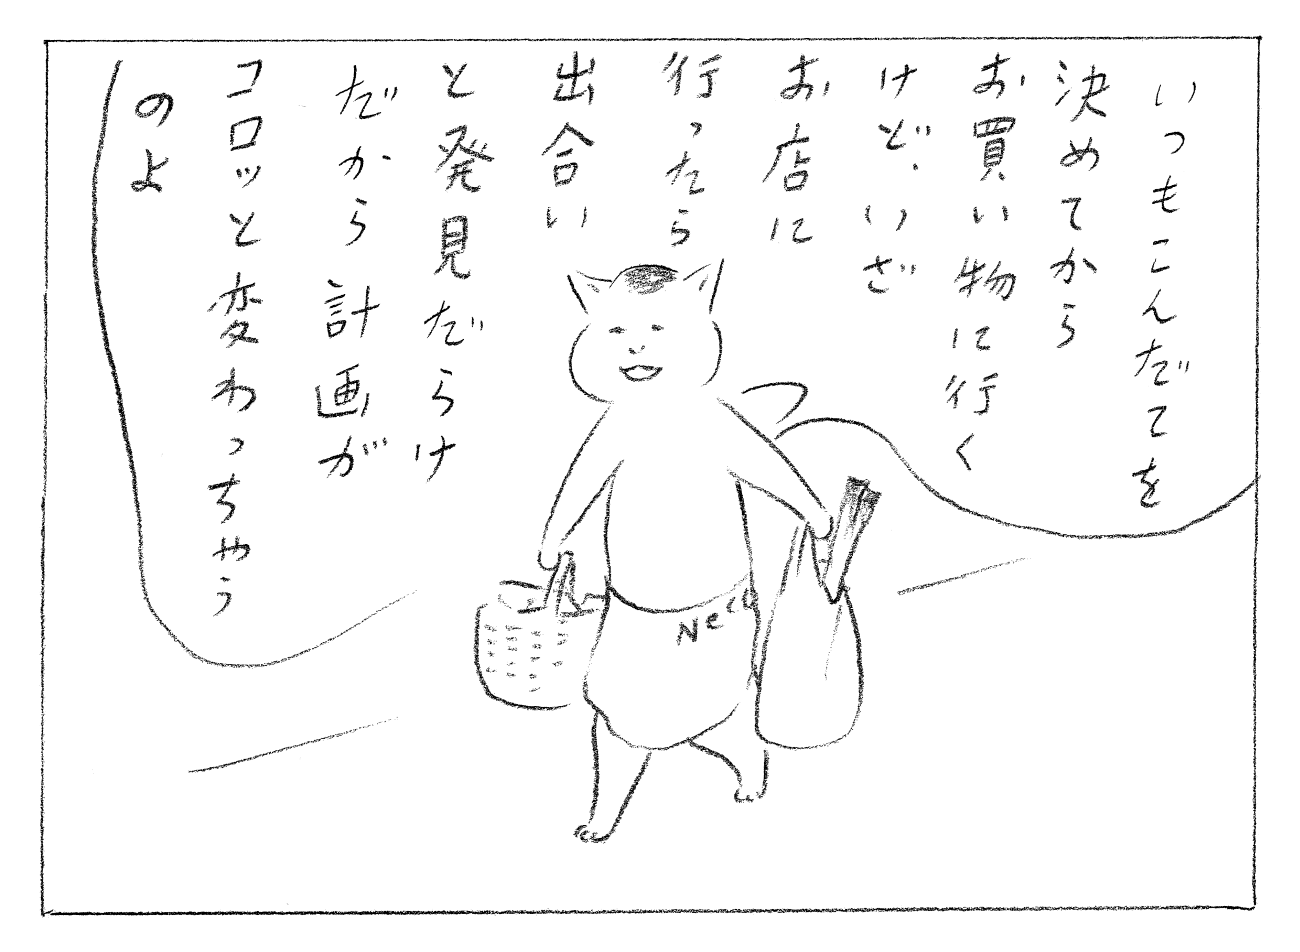 いつもこんだてを
決めてから
お買い物に行く
けど、いざ
お店に
行ったら
出合い
と発見だらけ
だから計画が
コロッと変わっちゃう
のよ
Neco